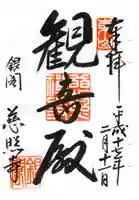 奉拝
平成十七年
二月十一日
観音殿
銀閣
慈照寺